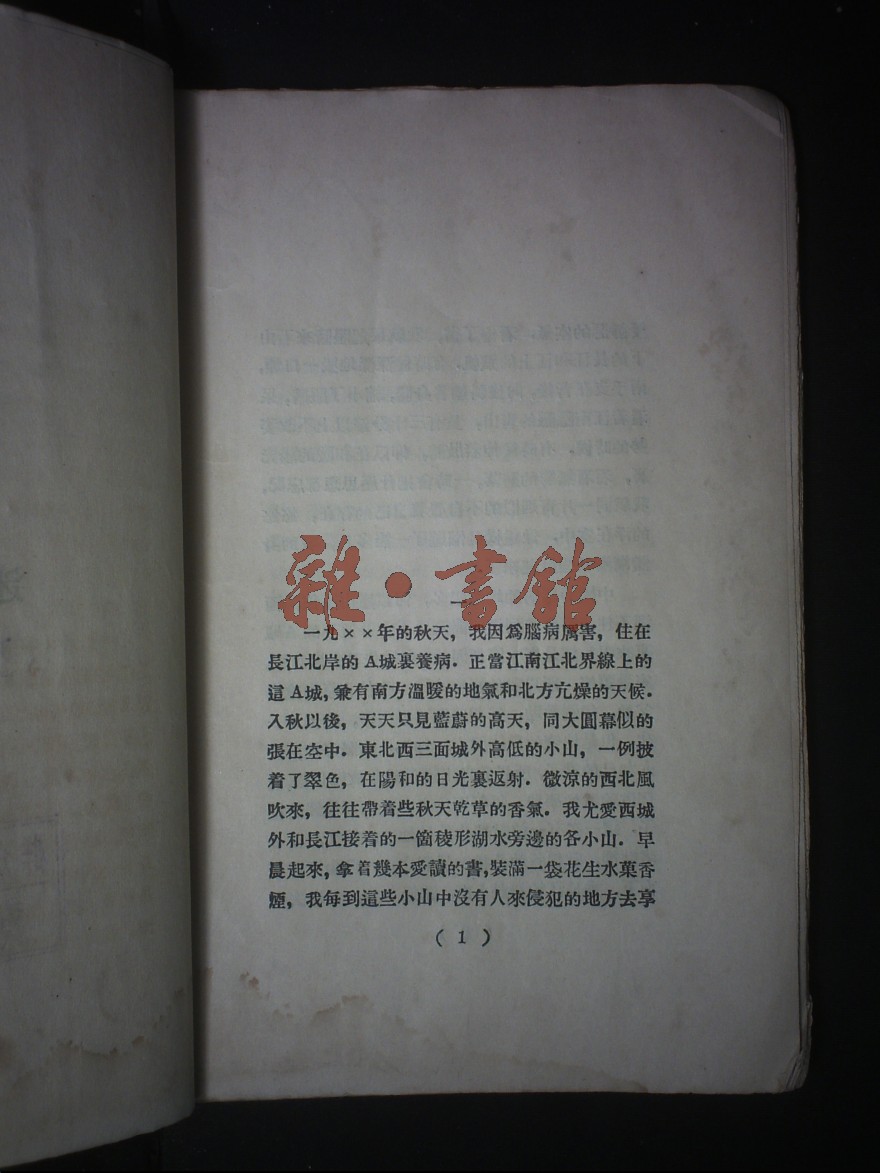 雜·書館
一
一九××年的秋天，我因爲腦病厲害，住在
長江北岸的A城裏養病．正當江南江北界線上的
這A城，兼有南方溫暖的地氣和北方亢燥的天候．
入秋以後，天天只見藍蔚的高天，同大圓幕似的
張在空中．東北西三面城外高低的小山，一例披
着了翠色，在陽和的日光裏返射．微涼的西北風
吹來，往往帶着些秋天乾草的香氣．我尤愛西城
外和長江接着的一箇稜形湖水旁邊的各小山．早
晨起來，拿着幾本愛讀的書，裝滿一袋花生水菓香
煙，我每到這些小山中沒有人來侵犯的地方去享
( 1 )